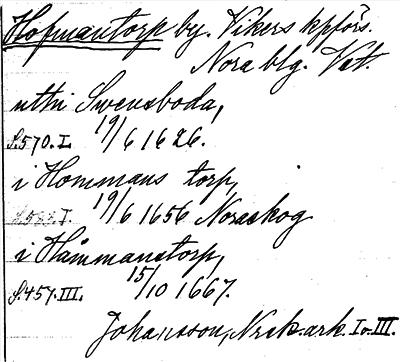 Hofmantorp by. Vikers kpförs.
Nora blg. Vat.
utti Swensboda,
S.570.I. 19/6 1626.
i Hommans torp,
I. 19/6 1656 Noraskog
i Håmmanstorp,
S.457.III. 15/10 1667.
Johansson, Nrsk. ark. I o. III.